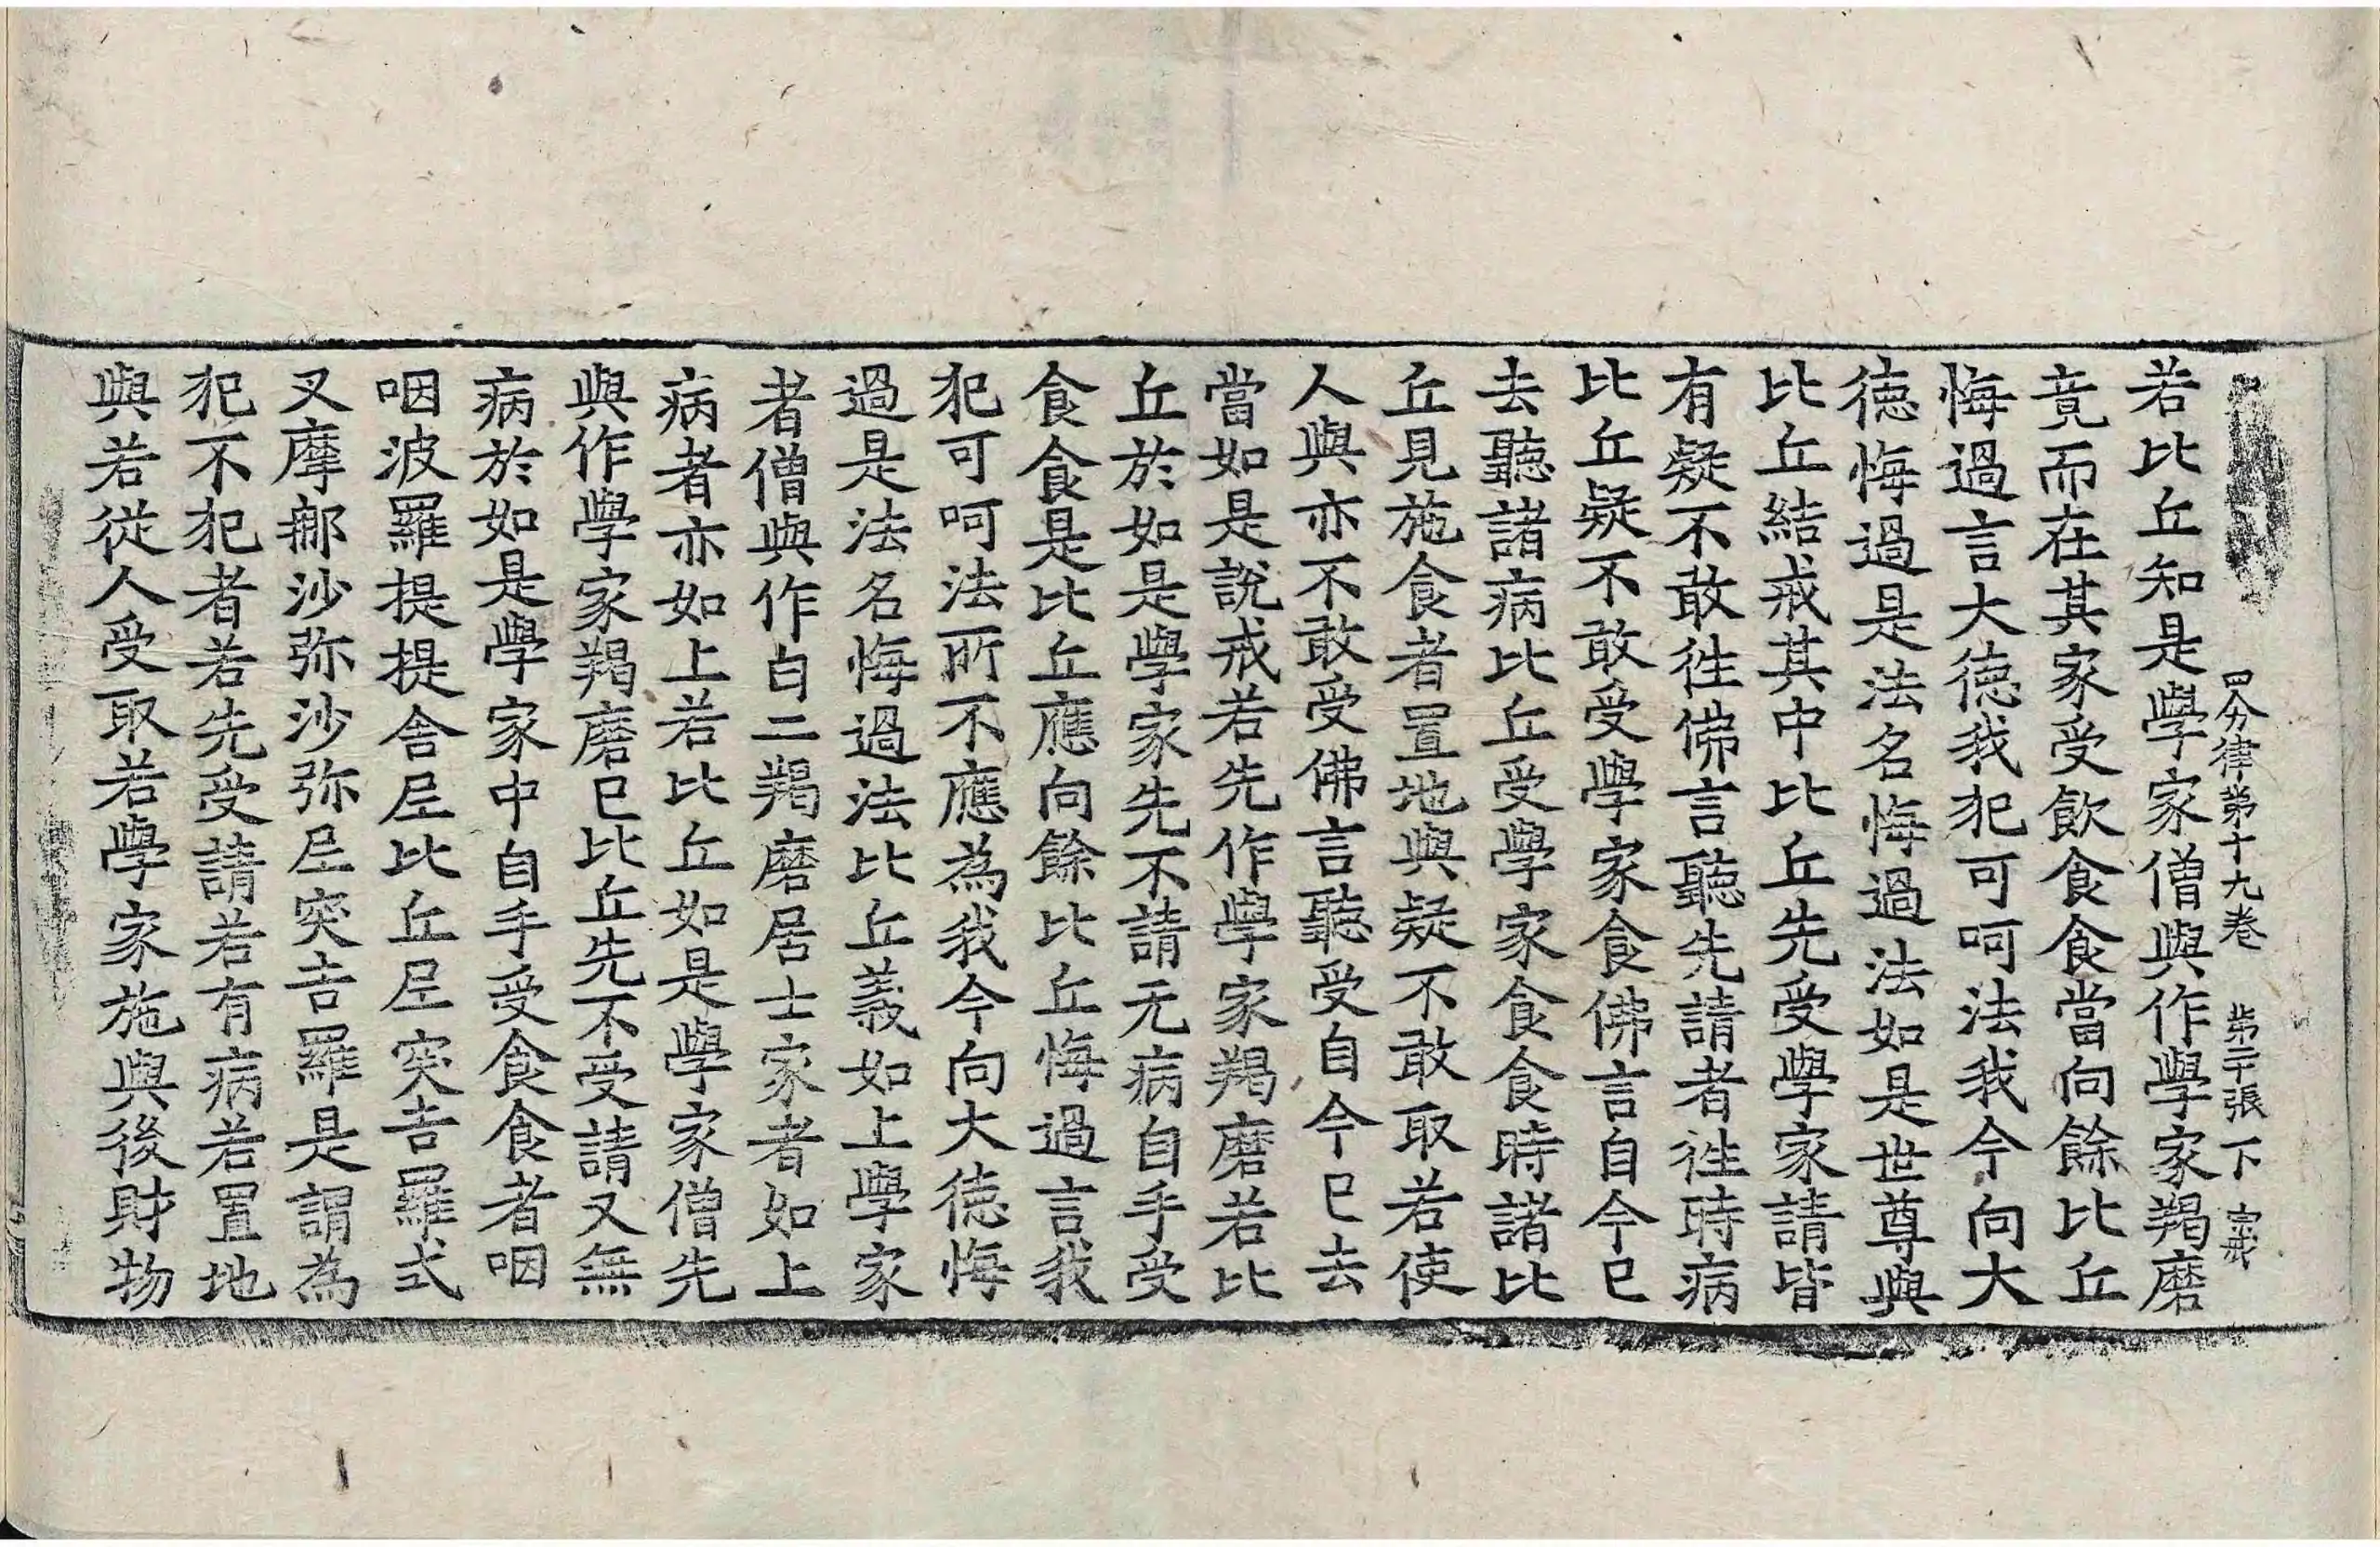 四分律第十九卷 第二十張 下
若比丘知是學家僧與作學家羯磨
竟而在其家受飲食食當向餘比丘
悔過言大德我犯可呵法我今向大
德悔過是法名悔過法如是世尊與
比丘結戒其中比丘先受學家請皆
有疑不敢往佛言聽先請者往時病
比丘疑不敢受學家食佛言自今已
去聽諸病比丘受學家食食時諸比
丘見施食者置地與疑不敢取若使
人與亦不敢受佛言聽受自今已去
當如是說戒若先作學家羯磨若比
丘於如是學家先不請无病自手受
食食是比丘應向餘比丘悔過言我
犯可呵法所不應為我今向大德悔
過是法名悔過法比丘義如上學家
者僧與作白二羯磨居士家者如上
病者亦如上若比丘如是學家僧先
與作學家羯磨已比丘先不受請又無
病於如是學家中自手受食食者咽
咽波羅提提舍尼比丘尼突吉羅式
叉摩那沙弥沙弥尼突吉羅是謂為
犯不犯者若先受請若有病若置地
與若從人受取若學家施與後財物